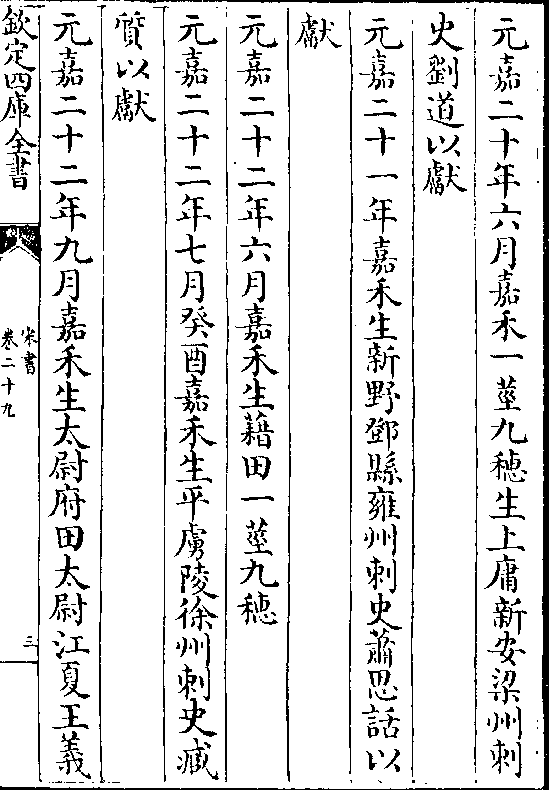 元嘉二十年六月嘉禾一莖九穗生上庸新安梁州刺
史劉道以獻
元嘉二十一年嘉禾生新野鄧縣雍州刺史蕭思話以
獻
元嘉二十二年六月嘉禾生藉田一莖九穗
元嘉二十二年七月癸酉嘉禾生平虜陵徐州刺史臧
質以獻
元嘉二十二年九月嘉禾生太尉府田太尉江夏王義
欽定四庫全書
宋書
卷二十九
三